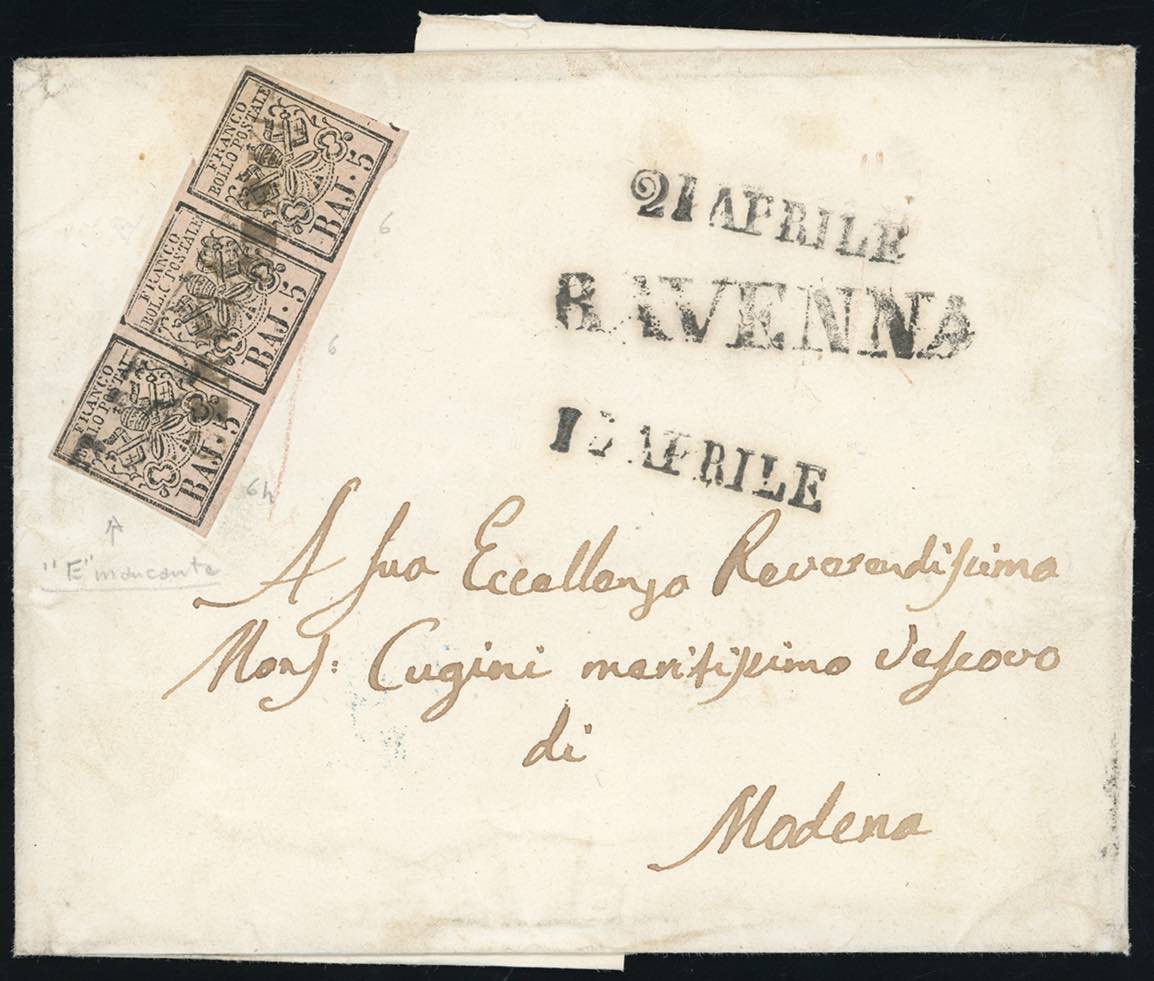 FRANCO
BOLLO POSTALE
BAJ. 5
FRANCO
BOLLO POSTALE
BAJ. 5
FRANCO
LLO POSTAL
BAJ. 5
21 APRILE
RAVENNA
APRILE
6
6
6h
"E" mancante
A sua Eccellenza Reverendissima
Mons: Cugini meritissimo Vescovo
di
Modena